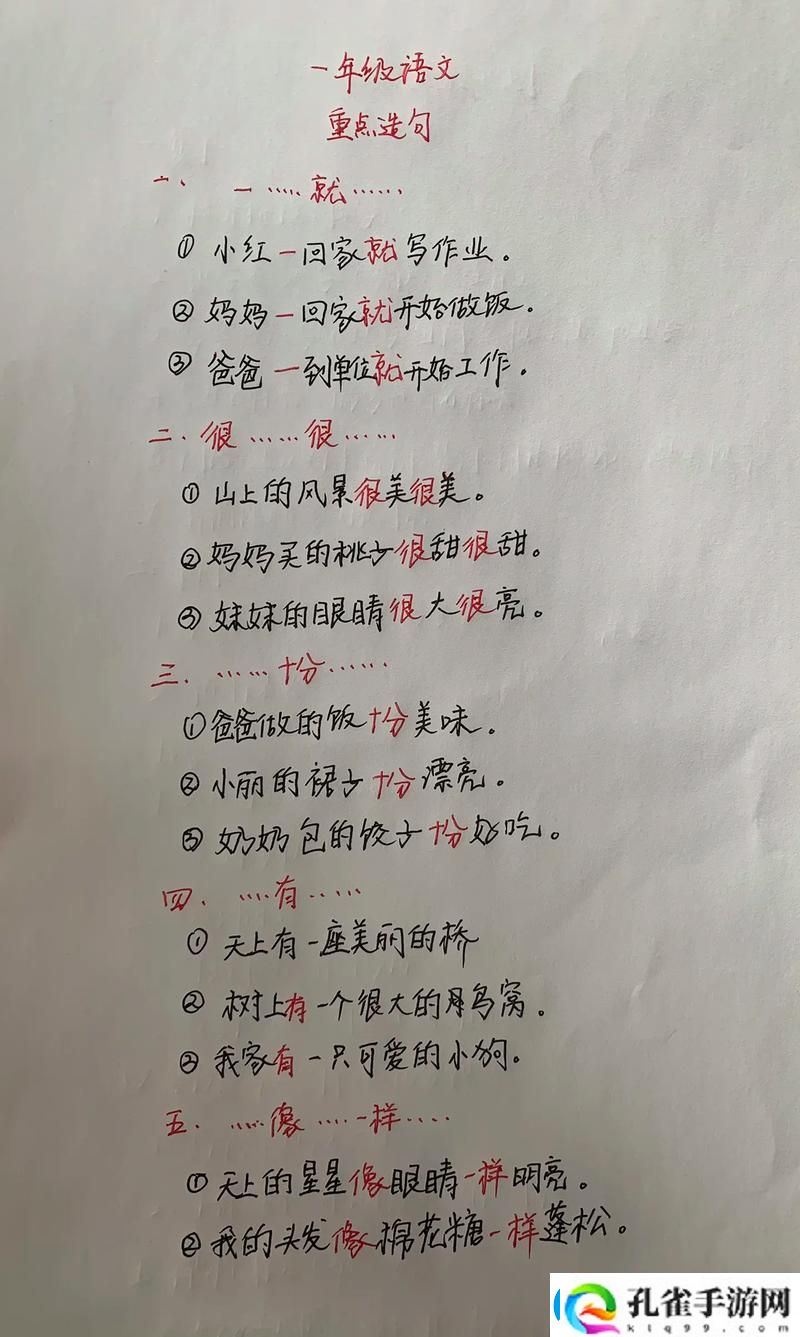 一年级语文
重点造句
一、 一……就……
① 小红一回家就写作业。
② 妈妈一回家就开始做饭。
③ 爸爸一到单位就开始工作。
二、很……很……
① 山上的风景很美很美。
② 妈妈买的桃子很甜很甜。
③ 妹妹的眼睛很大很亮。
三、……十分……
① 爸爸做的饭十分美味。
② 小丽的裙子十分漂亮。
③ 奶奶包的饺子十分好吃。
四、……有……
① 天上有一座美丽的桥
② 树上有一个很大的鸟窝。
③ 我家有一只可爱的小狗。
五、……像……一样……
① 天上的星星像眼睛一样明亮。
② 我的头发像棉花糖一样蓬松。
孔雀手游网
klq99.com